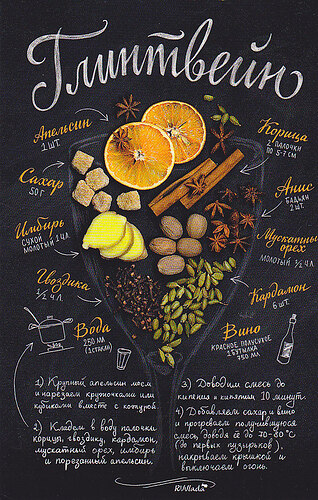 Глинтвейн
Апельсин
1 шт.
Корица
2 палочки
по 5-7 см
Сахар
50 г.
Анис
бадьян
2 шт.
Имбирь
сухой
молотый 1 ч.л.
Мускатный
орех
молотый 1/2 ч.л.
Гвоздика
1/2 ч.л.
Кардамон
6 шт.
Вода
250 мл
(1 стакан)
Вино
красное полусухое
1 бутылка
750 мл
1) Крупный апельсин моем
и нарезаем кружочками или
кубиками вместе с кожурой.
2) Кладем в воду палочки
корицы, гвоздику, кардамон,
мускатный орех, имбирь
и порезанный апельсин.
3) Доводим смесь до
кипения и кипятим 10 минут.
4) Добавляем сахар и вино
и прогреваем получившуюся
смесь доведя её до 70-80°C
(до первых пузырьков),
накрываем крышкой и
выключаем огонь.